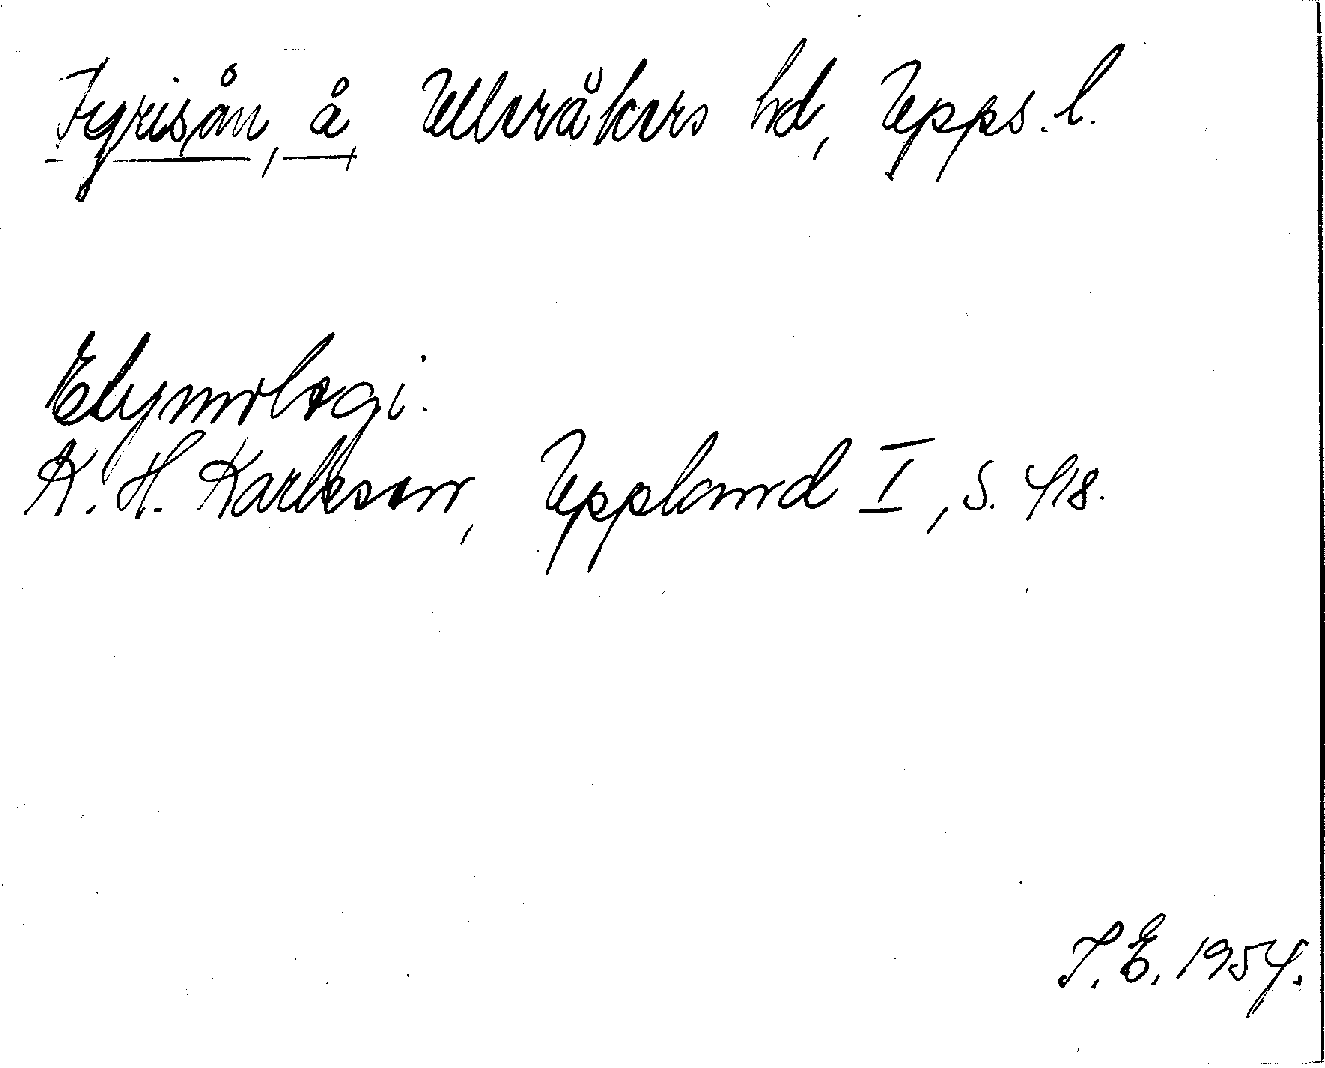 Fyrisån, å Ulleråkers hd, Upps. l.
Etymologi.
K. H. Karlsson, Uppland I, s. 418.
I. E. 1954.